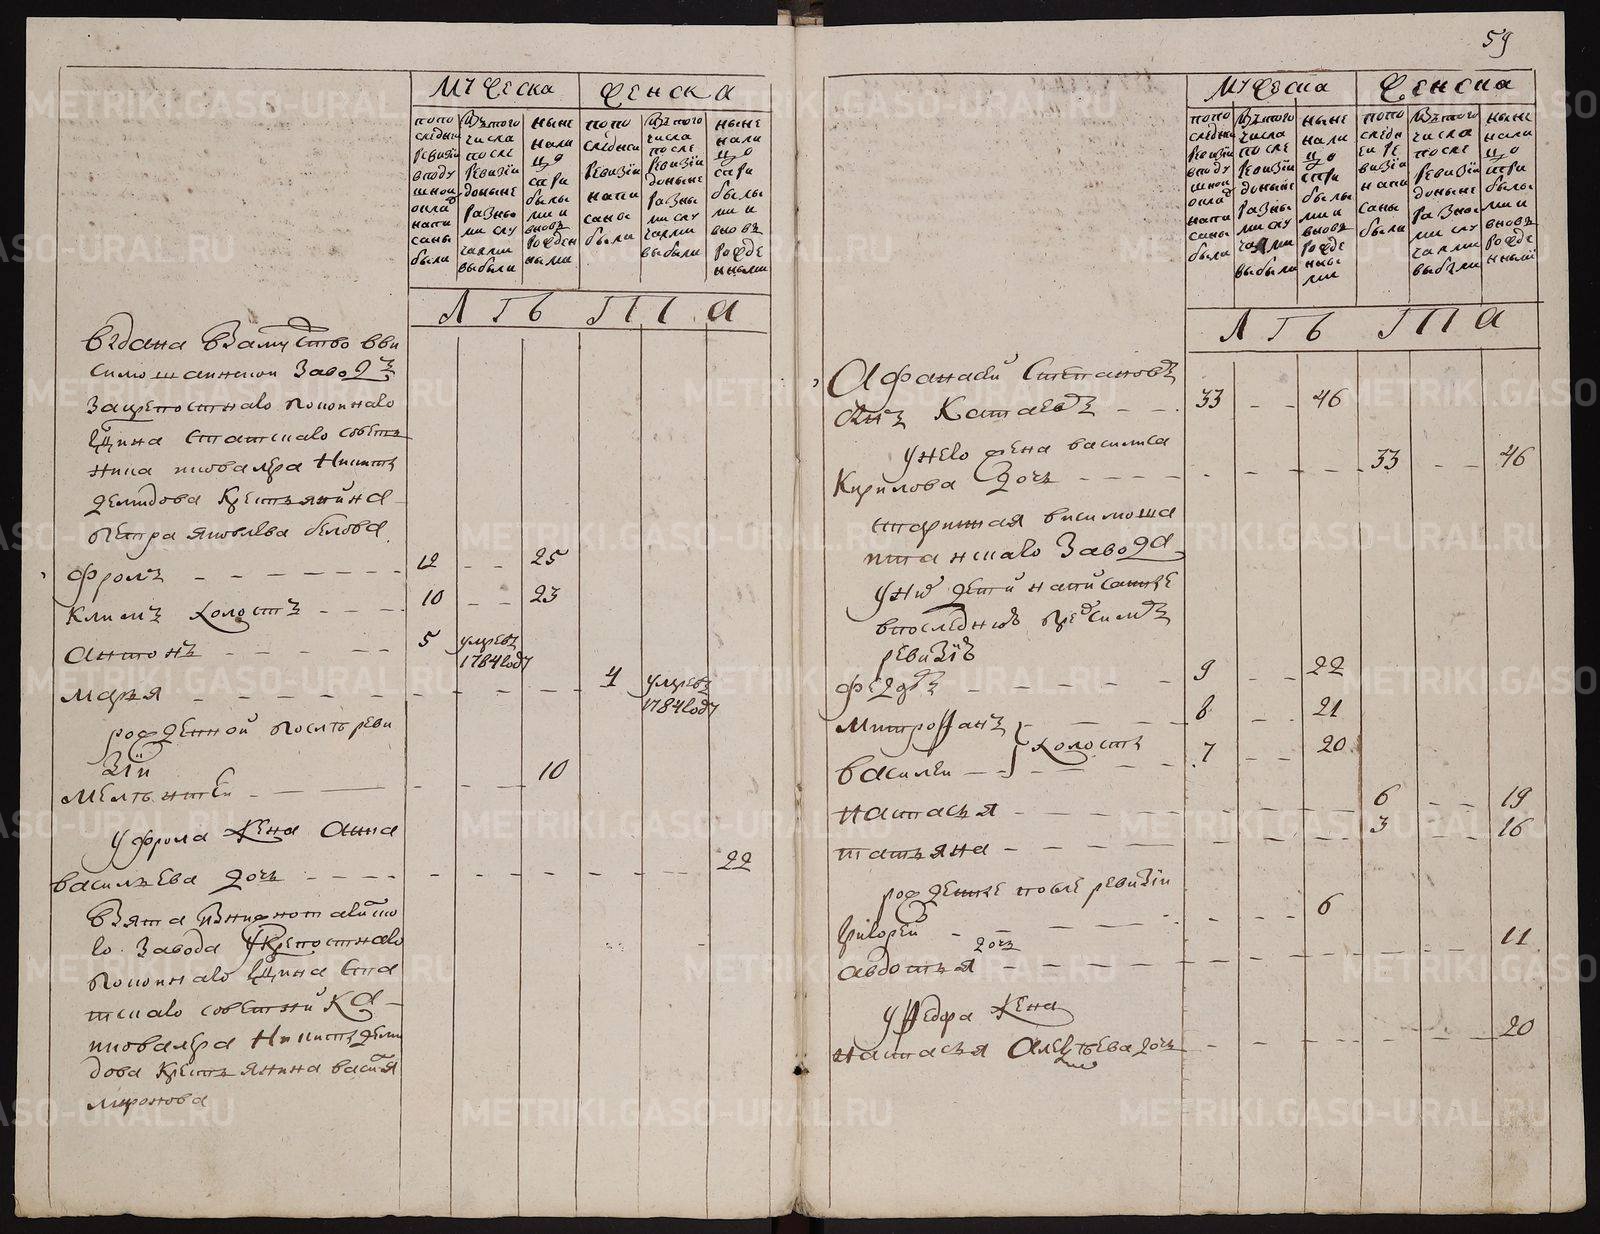 59
мужеска
женска
попо
следней
ревизіи
вподу
шной
оклад
напи
саны
были
Изтого
числа
после
ревизіи
доныне
разны
ми слу
чаями
выбыли
ныне
нали
цо
спри
былы
ми и
вновь
рожден
ными
попо
следней
ревизіи
напи
саны
были
Изтого
числа
после
ревизіи
доныне
разны
ми слу
чаями
выбыли
ныне
нали
цо
спри
былы
ми и
вновь
рожде
нными
Л Г Ъ Т П А
въдана Взамужство вви
симошаинской Заводъ
Закрепостнаго покойнаго
Гдина статскаго совет
ника икавалера Никиты
демидова Крестьянина
петра яковлева белова
фролъ 12 25
климъ холостъ 10 23
антонъ 5 умревъ
1784году
марья 4 умрев
1784году
рожденной послъ реви
зіи
мелънтеи 10
у фрола жена анна
васильева дочь 22
Взята Изнижнотагилско
го завода Укрепостнаго
покойнаго Гдина ста
тскаго советника
икавалера Никиты деми
дова Крестьянина васил
миронова
мужеска
женска
попо
следней
ревизіи
вподу
шной
оклад
напи
саны
были
Изтого
числа
после
ревизіи
доныне
разны
ми слу
чаями
выбыли
ныне
нали
цо
спри
былы
ми и
вновь
рожде
нны
ми
попо
следн
еи ре
визіи
напи
саны
были
Изтого
числа
после
ревизіи
доныне
разны
ми слу
чаями
выбыли
ныне
нали
цо
спри
былы
ми и
вновь
рожде
нными
Л Г Ъ Т П А
Афанасей Степановъ
снъ Катаевъ 33 46
унего жена василиса
Кирилова дочь 33 46
старинная висимоша
итанскаго Завода
униx дети написанные
впоследнюю пред симъ
ревизію
федоръ 9 22
митрофанъ 8 21
холосты
василеи 7 20
настасья 6 19
татьяна 3 16
рожденные после ревизіи
григореи 6
авдотья дочь 11
у федра жена
настасья Алексъева дочь 20
METRIKI.GASO-URAL.RU